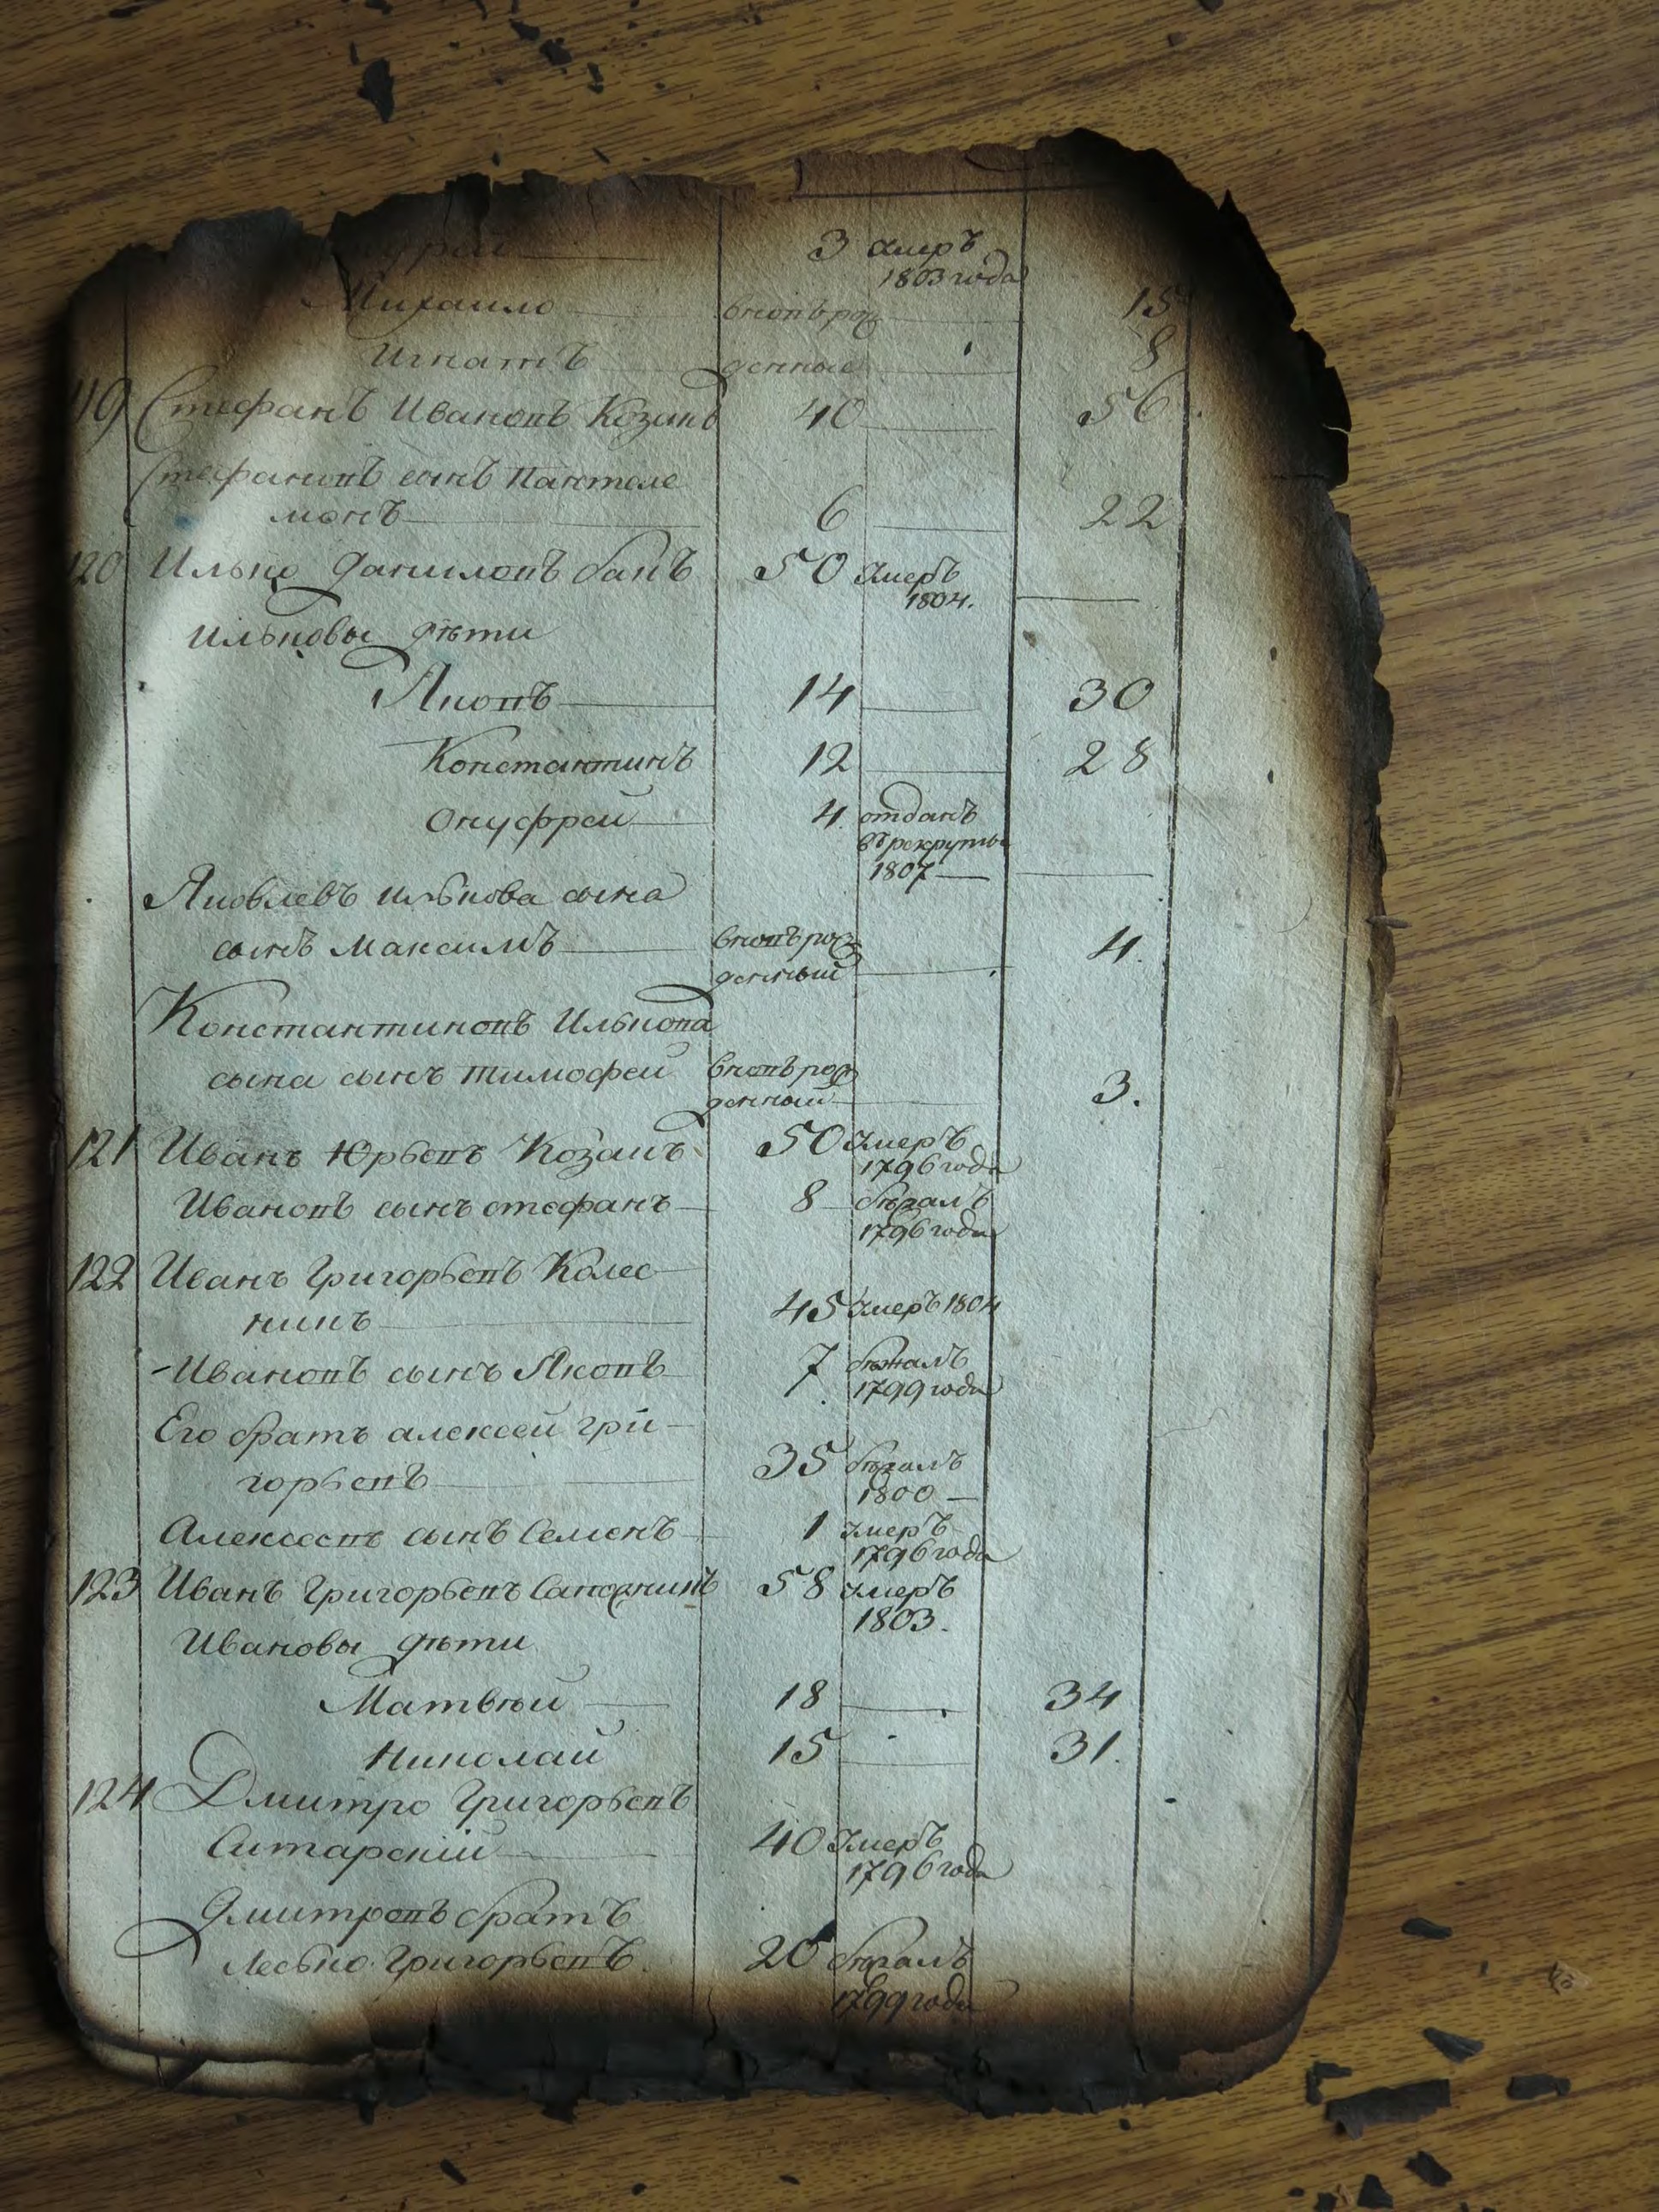 3 умеръ
1803 года
Михайло вновь рож 15
Игнатъ денные 8
119 Стефанъ Ивановъ Козакъ 40 56
Стефановъ сынъ Пантеле
монъ 6 22
120 Илько Даниловъ Бакъ 50 умеръ
1804.
Ильковы дѣти
Яковъ 14 30
Константинъ 12 28
Онуфрей 4. отданъ
въ рекруты
1807
Яковлевъ Илькова сына
сынъ Максимъ вновь рож 4.
денный
Константиновъ Илькова
сына сынъ Тимофей вновь рож
денный 3.
121 Иванъ Юрьевъ Козакъ 50 умеръ
1796 года
Ивановъ сынъ Стефанъ 8 бѣгалъ
1796 года
122 Иванъ Григорьевъ Колес
никъ 45 умеръ 1804
Ивановъ сынъ Яковъ 7 бѣжалъ
1799 года
Его братъ Алексей Гри-
горьевъ 35 бѣгалъ
1800
Алексеевъ сынъ Семенъ 1 умеръ
1796 года
123 Иванъ Григорьевъ 58 умеръ
1803.
Ивановы дѣти
Матвѣй 18 34
Николай 15 31.
124 Дмитро Григорьевъ
Ситарскій 40 умеръ
1796 года
Дмитровъ братъ
Лесько Григорьевъ. 20 бѣгалъ
1799 года